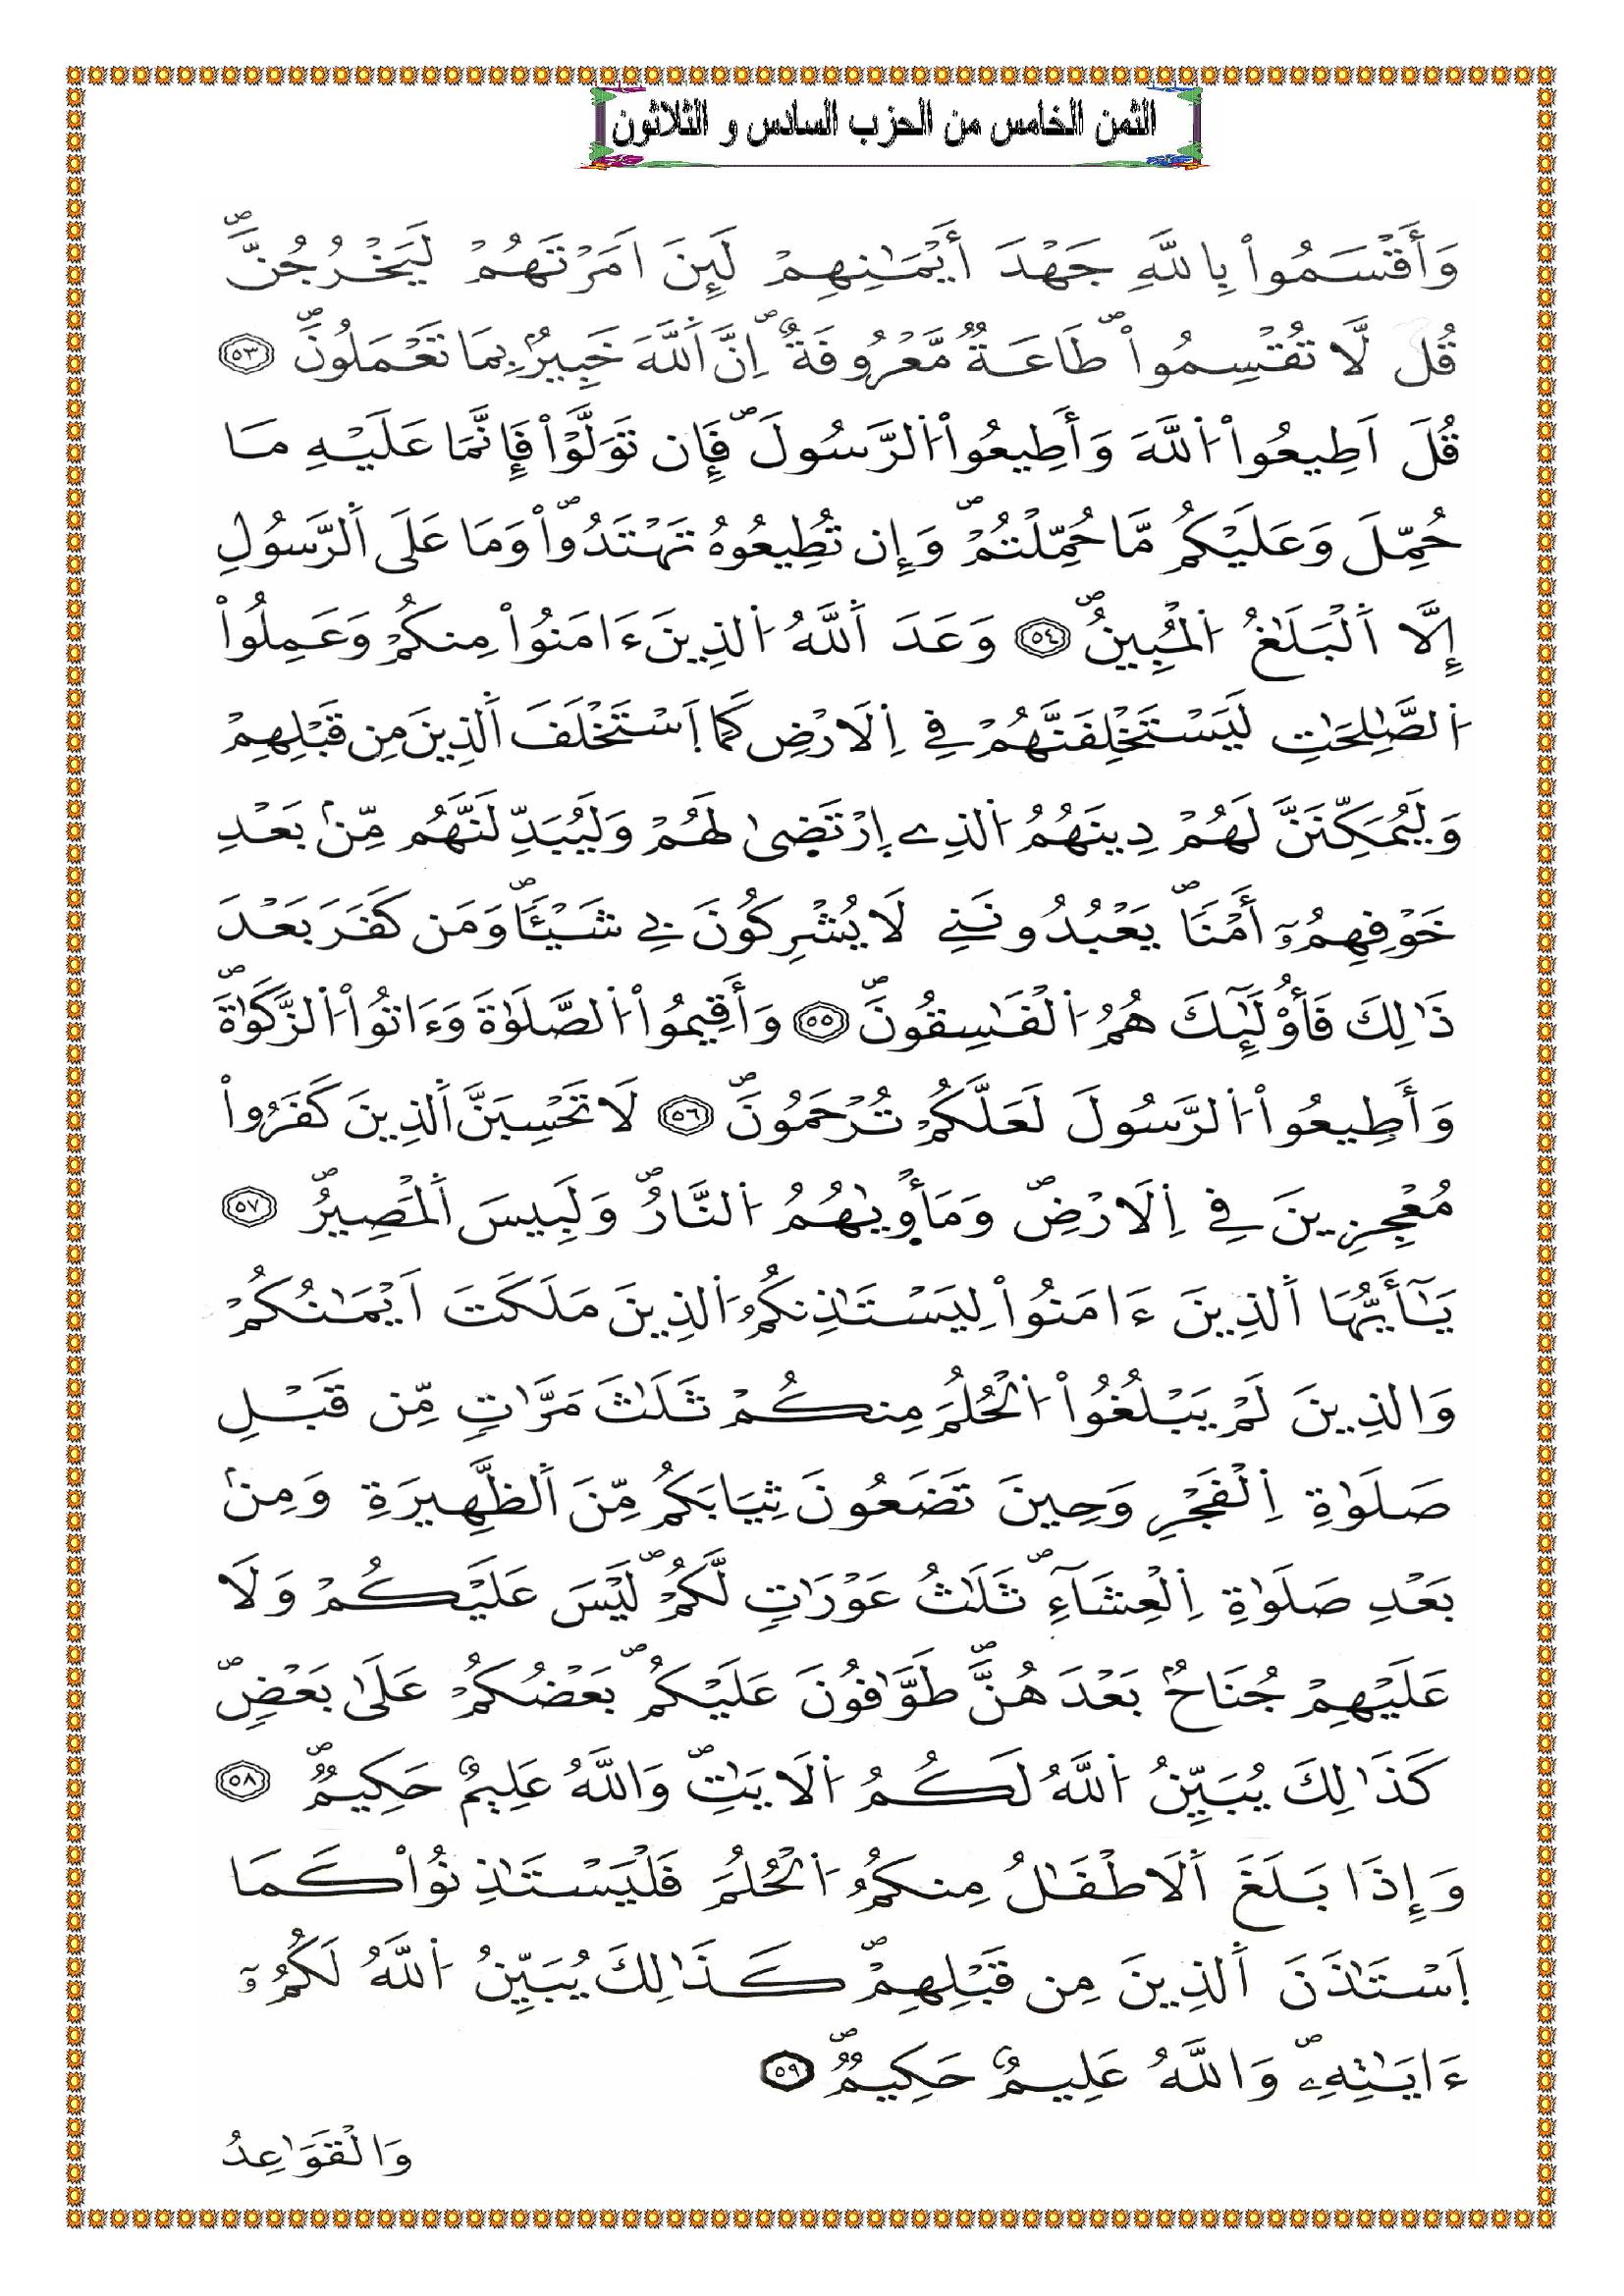 الثمن الخامس من الحزب السادس و الثلاثون
وَأَقْسَمُواْ بِاللَّهِ جَهْدَ أَيْمَٰنِهِمْ لَئِنَ اَمَرْتَهُمْ لَيَخْرُجُنَّۖ
قُل لَّا تُقْسِمُواْۖ طَاعَةٌ مَّعْرُوفَةٌۖ اِنَّ اَللَّهَ خَبِيرُۢ بِمَا تَعْمَلُونَۖ ٥٣
قُلَ اَطِيعُواْ اُللَّهَ وَأَطِيعُواْ اُلرَّسُولَۖ فَإِن تَوَلَّوْاْ فَإِنَّمَا عَلَيْهِ مَا
حُمِّلَ وَعَلَيْكُم مَّا حُمِّلْتُمْۖ وَإِن تُطِيعُوهُ تَهْتَدُواْۖ وَمَا عَلَى اَلرَّسُولِ
إِلَّا اَلْبَلَٰغُ اُلْمُبِينُۖ ٥٤ وَعَدَ اَللَّهُ اُلذِينَ ءَامَنُواْ مِنكُمْ وَعَمِلُواْ
اُلصَّٰلِحَٰتِ لَيَسْتَخْلِفَنَّهُمْ فِي اِلَارْضِ كَمَا اَسْتَخْلَفَ اَلذِينَ مِن قَبْلِهِمْ
وَلَيُمَكِّنَنَّ لَهُمْ دِينَهُمُ اُلذِے اِرْتَضَىٰ لَهُمْ وَلَيُبَدِّلَنَّهُم مِّنۢ بَعْدِ
خَوْفِهِمُۥٓ أَمْناًۖ يَعْبُدُونَنِے لَا يُشْرِكُونَ بِے شَيْـٔاًۖ وَمَن كَفَرَ بَعْدَ
ذَٰلِكَ فَأُوْلَٰٓئِكَ هُمُ اُلْفَٰسِقُونَۖ ٥٥ وَأَقِيمُواْ اُلصَّلَوٰةَ وَءَاتُواْ اُلزَّكَوٰةَۖ
وَأَطِيعُواْ اُلرَّسُولَ لَعَلَّكُمْ تُرْحَمُونَۖ ٥٦ لَا تَحْسِبَنَّ اَلذِينَ كَفَرُواْ
مُعْجِزِينَ فِي اِلَارْضِۖ وَمَأْوۭيٰهُمُ اُلنَّارُۖ وَلَبِيسَ اَلْمَصِيرُۖ ٥٧
يَٰٓأَيُّهَا اَلذِينَ ءَامَنُواْ لِيَسْتَٰذِنكُمُ اُلذِينَ مَلَكَتَ اَيْمَٰنُكُمْ
وَالذِينَ لَمْ يَبْلُغُواْ اُلْحُلُمَ مِنكُمْ ثَلَٰثَ مَرَّٰتٍ مِّن قَبْلِ
صَلَوٰةِ اِلْفَجْرِ وَحِينَ تَضَعُونَ ثِيَابَكُم مِّنَ اَلظَّهِيرَةِ وَمِنۢ
بَعْدِ صَلَوٰةِ اِلْعِشَآءِۖ ثَلَٰثُ عَوْرَٰتٍ لَّكُمْۖ لَيْسَ عَلَيْكُمْ وَلَا
عَلَيْهِمْ جُنَاحُۢ بَعْدَهُنَّۖ طَوَّٰفُونَ عَلَيْكُمۖ بَعْضُكُمْ عَلَىٰ بَعْضٍۖ
كَذَٰلِكَ يُبَيِّنُ اُللَّهُ لَكُمُ اُلَايَٰتِۖ وَاللَّهُ عَلِيمٌ حَكِيمٌۖ ٥٨
وَإِذَا بَلَغَ اَلَاطْفَٰلُ مِنكُمُ اُلْحُلُمَ فَلْيَسْتَٰذِنُواْ كَمَا
اَسْتَٰذَنَ اَلذِينَ مِن قَبْلِهِمْۖ كَذَٰلِكَ يُبَيِّنُ اُللَّهُ لَكُمُۥٓ
ءَايَٰتِهِۦۖ وَاللَّهُ عَلِيمٌ حَكِيمٌۖ ٥٩
وَالْقَوَٰعِدُ